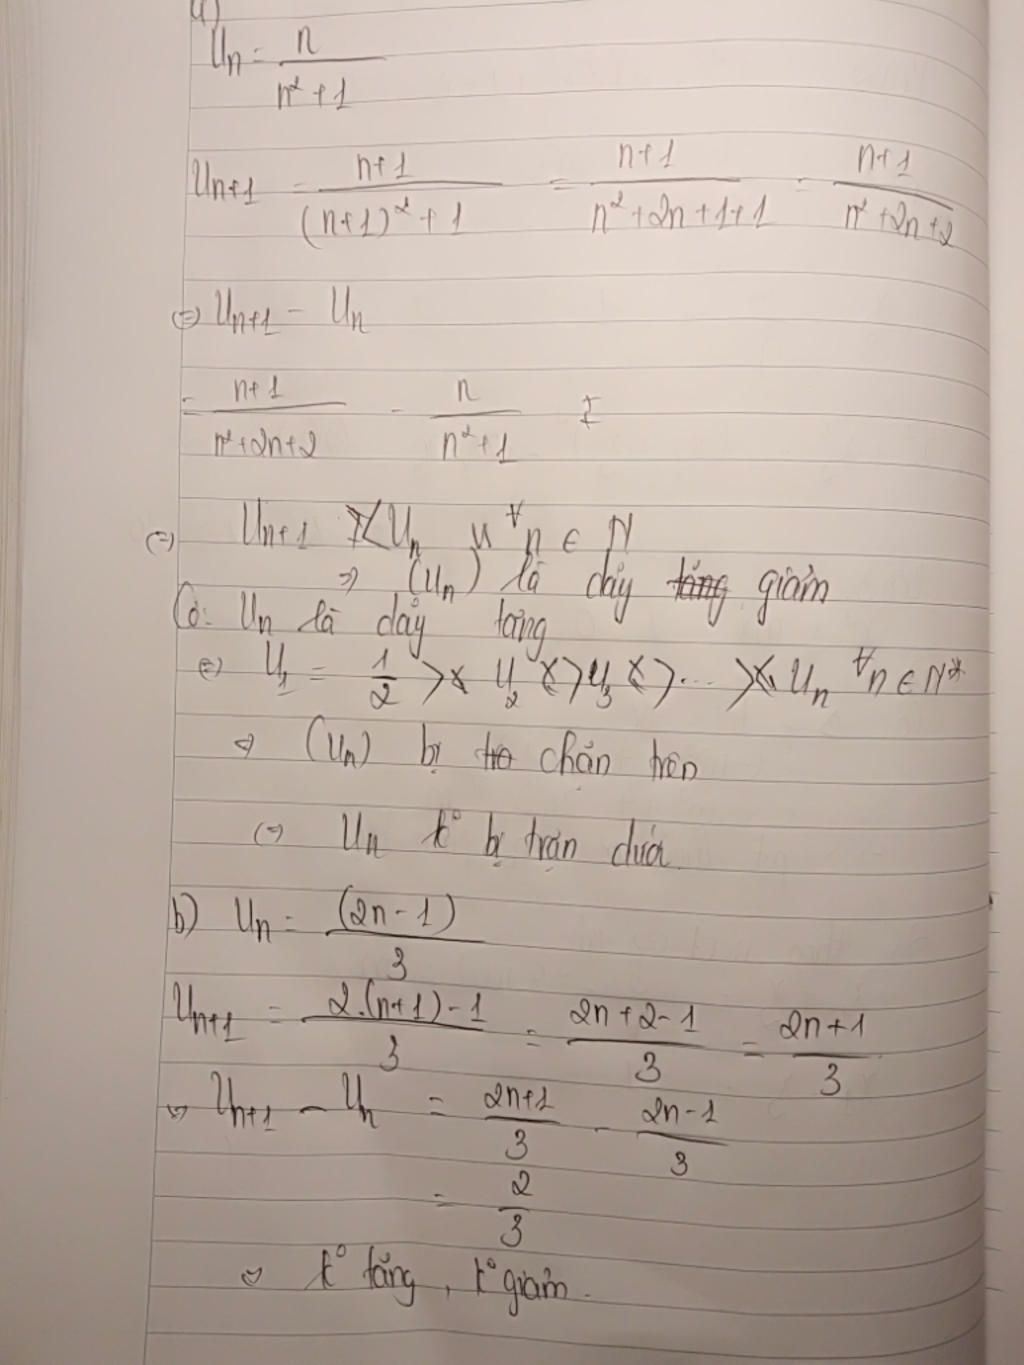 a)
Un = n / n² + 1
Un+1 = n+1 / (n+1)² + 1 = n+1 / n² + 2n + 1 + 1 = n+1 / n² + 2n + 2
⇔ Un+1 - Un
= n+1 / n² + 2n + 2 - n / n² + 1
⇔ Un+1 < Un ∀n ∈ N
⇒ (Un) là dãy tăng giảm
Có: Un là dãy tăng
⇔ U1 = 1/2 > U2 > U3 > ... > Un ∀n ∈ N*
⇒ (Un) bị chặn trên
⇔ Un k° bị trặn dưới
b) Un = (2n - 1) / 3
Un+1 = 2.(n+1) - 1 / 3 = 2n + 2 - 1 / 3 = 2n + 1 / 3
⇒ Un+1 - Un = 2n+1 / 3 - 2n - 1 / 3
= 2 / 3
⇒ k° tăng, k° giảm.